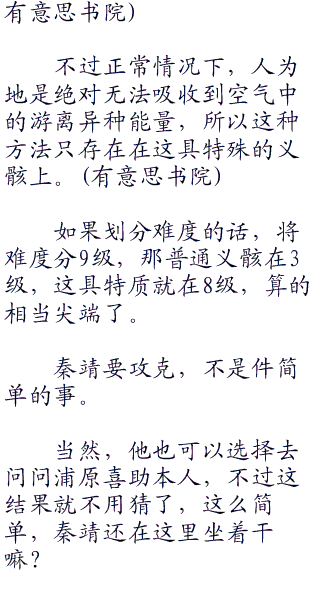 有意思书院)
不过正常情况下，人为
地是绝对无法吸收到空气中
的游离异种能量，所以这种
方法只存在在这具特殊的义
骸上。(有意思书院)
如果划分难度的话，将
难度分9级，那普通义骸在3
级，这具特质就在8级，算的
相当尖端了。
秦靖要攻克，不是件简
单的事。
当然，他也可以选择去
问问浦原喜助本人，不过这
结果就不用猜了，这么简
单，秦靖还在这里坐着干
嘛？